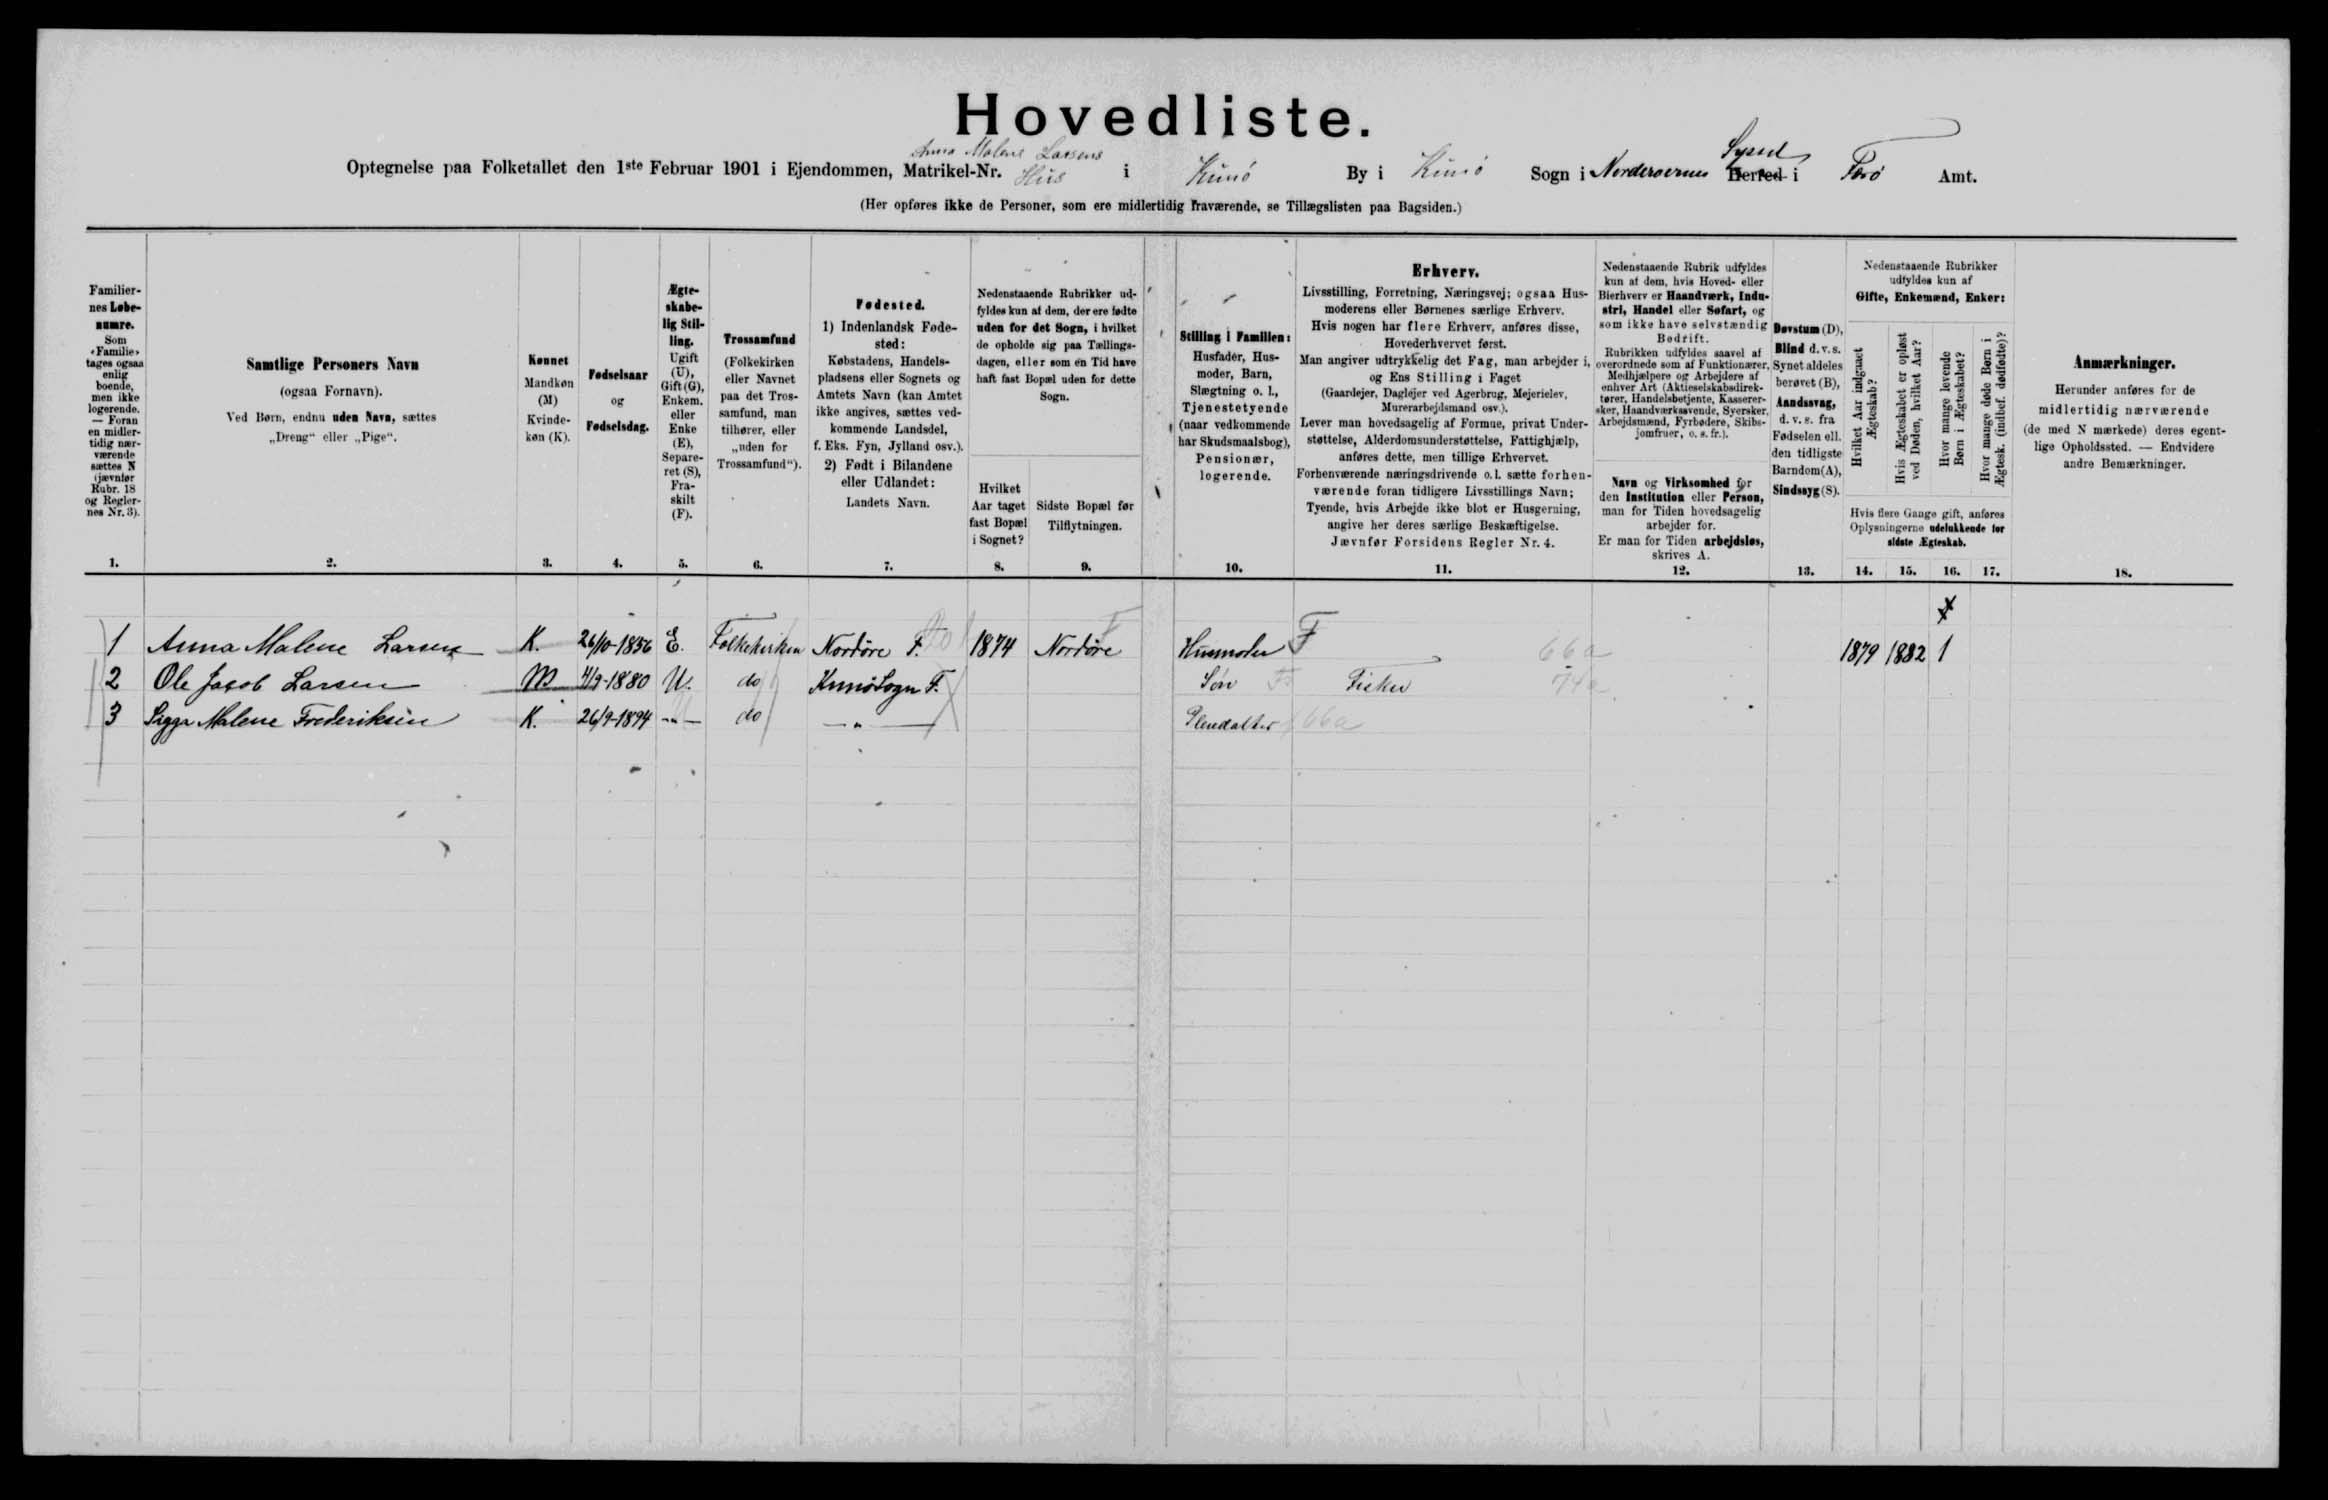 Hovedliste.
Anna Malene Larsens
Optegnelse paa Folketallet den 1ste Februar 1901 i Ejendommen, Matrikel-Nr. Hus i Kunø By i Kunø Sogn i Norderoernes Herred Syssel i Færø Amt.
(Her opføres ikke de Personer, som ere midlertidig fraværende, se Tillægslisten paa Bagsiden.)
Familier-
nes Løbe-
numre.
Som
«Familie»
tages ogsaa
enlig
boende,
men ikke
logerende.
— Foran
en midler-
tidig nær-
værende
sættes N
(jævnfør
Rubr. 18
og Regler-
nes Nr. 3).
1.
Samtlige Personers Navn
(ogsaa Fornavn).
Ved Børn, endnu uden Navn, sættes
„Dreng“ eller „Pige“.
2.
Kønnet
Mandkøn
(M)
Kvinde-
køn (K).
3.
Fødselsaar
og
Fødselsdag.
4.
Ægte-
skabe-
lig Stil-
ling.
Ugift
(U),
Gift (G),
Enkem.
eller
Enke
(E),
Separe-
ret (S),
Fra-
skilt
(F).
5.
Trossamfund
(Folkekirken
eller Navnet
paa det Tros-
samfund, man
tilhører, eller
„uden for
Trossamfund“).
6.
Fødested.
1) Indenlandsk Føde-
sted:
Købstadens, Handels-
pladsens eller Sognets og
Amtets Navn (kan Amtet
ikke angives, sættes ved-
kommende Landsdel,
f. Eks. Fyn, Jylland osv.).
2) Født i Bilandene
eller Udlandet:
Landets Navn.
7.
Nedenstaaende Rubrikker ud-
fyldes kun af dem, der ere fødte
uden for det Sogn, i hvilket
de opholde sig paa Tællings-
dagen, eller som en Tid have
haft fast Bopæl uden for dette
Sogn.
Hvilket
Aar taget
fast Bopæl
i Sognet?
8.
Sidste Bopæl før
Tilflytningen.
9.
Stilling i Familien:
Husfader, Hus-
moder, Barn,
Slægtning o. l.,
Tjenestetyende
(naar vedkommende
har Skudsmaalsbog),
Pensionær,
logerende.
10.
Erhverv.
Livsstilling, Forretning, Næringsvej; ogsaa Hus-
moderens eller Børnenes særlige Erhverv.
Hvis nogen har flere Erhverv, anføres disse,
Hovederhvervet først.
Man angiver udtrykkelig det Fag, man arbejder i,
og Ens Stilling i Faget
(Gaardejer, Daglejer ved Agerbrug, Mejerielev,
Murerarbejdsmand osv.).
Lever man hovedsagelig af Formue, privat Under-
støttelse, Alderdomsunderstøttelse, Fattighjælp,
anføres dette, men tillige Erhvervet.
Forhenværende næringsdrivende o. l. sætte forhen-
værende foran tidligere Livsstillings Navn;
Tyende, hvis Arbejde ikke blot er Husgerning,
angive her deres særlige Beskæftigelse.
Jævnfør Forsidens Regler Nr. 4.
11.
Nedenstaaende Rubrik udfyldes
kun af dem, hvis Hoved- eller
Bierhverv er Haandværk, Indu-
stri, Handel eller Søfart, og
som ikke have selvstændig
Bedrift.
Rubrikken udfyldes saavel af
overordnede som af Funktionærer,
Medhjælpere og Arbejdere af
enhver Art (Aktieselskabsdirek-
tører, Handelsbetjente, Kasserer-
sker, Haandværkssvende, Syersker,
Arbejdsmænd, Fyrbødere, Skibs-
jomfruer, o. s. fr.).
Navn og Virksomhed for
den Institution eller Person,
man for Tiden hovedsagelig
arbejder for.
Er man for Tiden arbejdsløs,
skrives A.
12.
Døvstum (D),
Blind d. v. s.
Synet aldeles
berøvet (B),
Aandssvag,
d. v. s. fra
Fødselen ell.
den tidligste
Barndom (A),
Sindssyg (S).
13.
Nedenstaaende Rubrikker
udfyldes kun af
Gifte, Enkemænd, Enker:
Hvilket Aar indgaaet
Ægteskab?
Hvis Ægteskabet er opløst
ved Døden, hvilket Aar?
Hvor mange levende
Børn i Ægteskabet?
Hvor mange døde Børn i
Ægtesk. (indbef. dødfødte)?
Hvis flere Gange gift, anføres
Oplysningerne udelukkende for
sidste Ægteskab.
14. 15. 16. 17.
Anmærkninger.
Herunder anføres for de
midlertidig nærværende
(de med N mærkede) deres egent-
lige Opholdssted. — Endvidere
andre Bemærkninger.
18.
1 Anna Malene Larsen K. 26/10-1856 E. Folkekirken Nordøre F. 1874 Nordøre F Husmoder F 66a 1879 1882 1
2 Ole Jacob Larsen M 4/9-1880 U. do Kunø Sogn F. Søn Fisker 74a
3 Sigga Malene Frederiksen K. 26/9-1894 -„- do -„- Plejedatter 66a